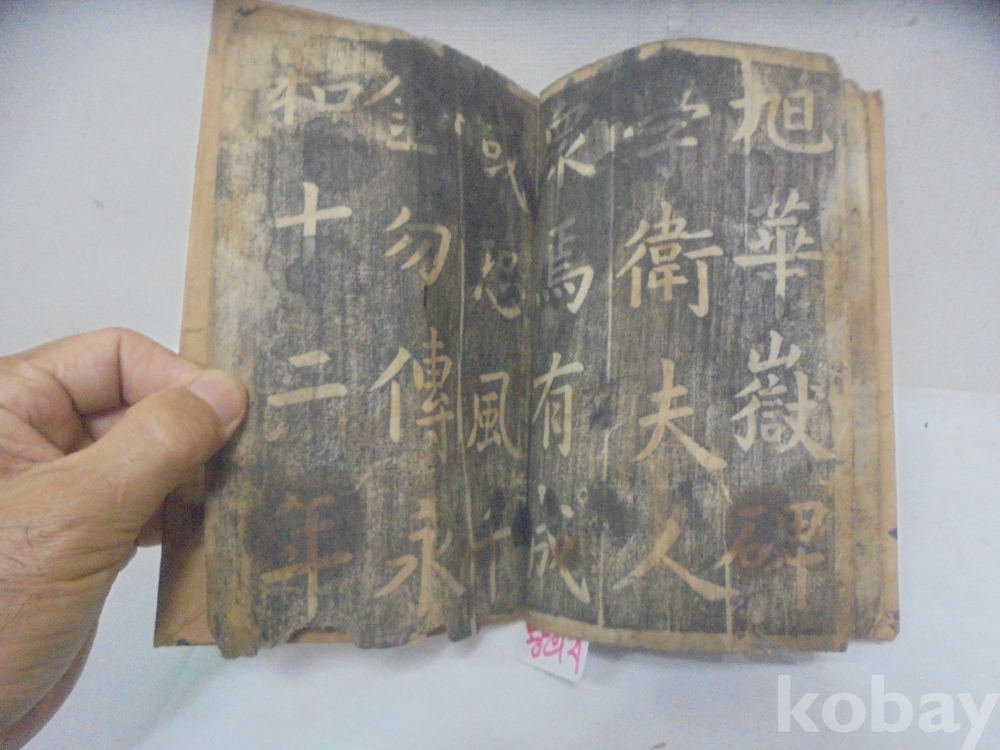 旭華嶽碑
学衛夫人
衆焉有成
或恐風千
金勿傳永
和十二年
kobay